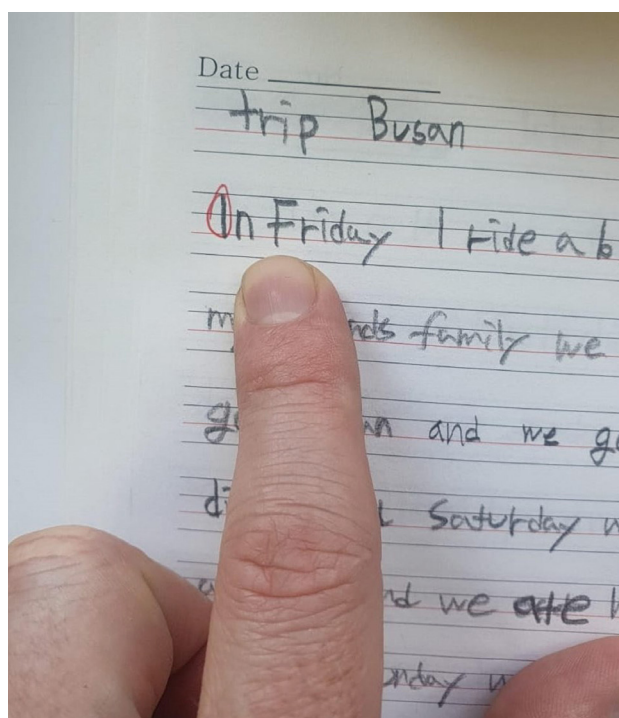 Date
trip Busan
In Friday I ride a b
nds family we
and we g
Saturday
we ate